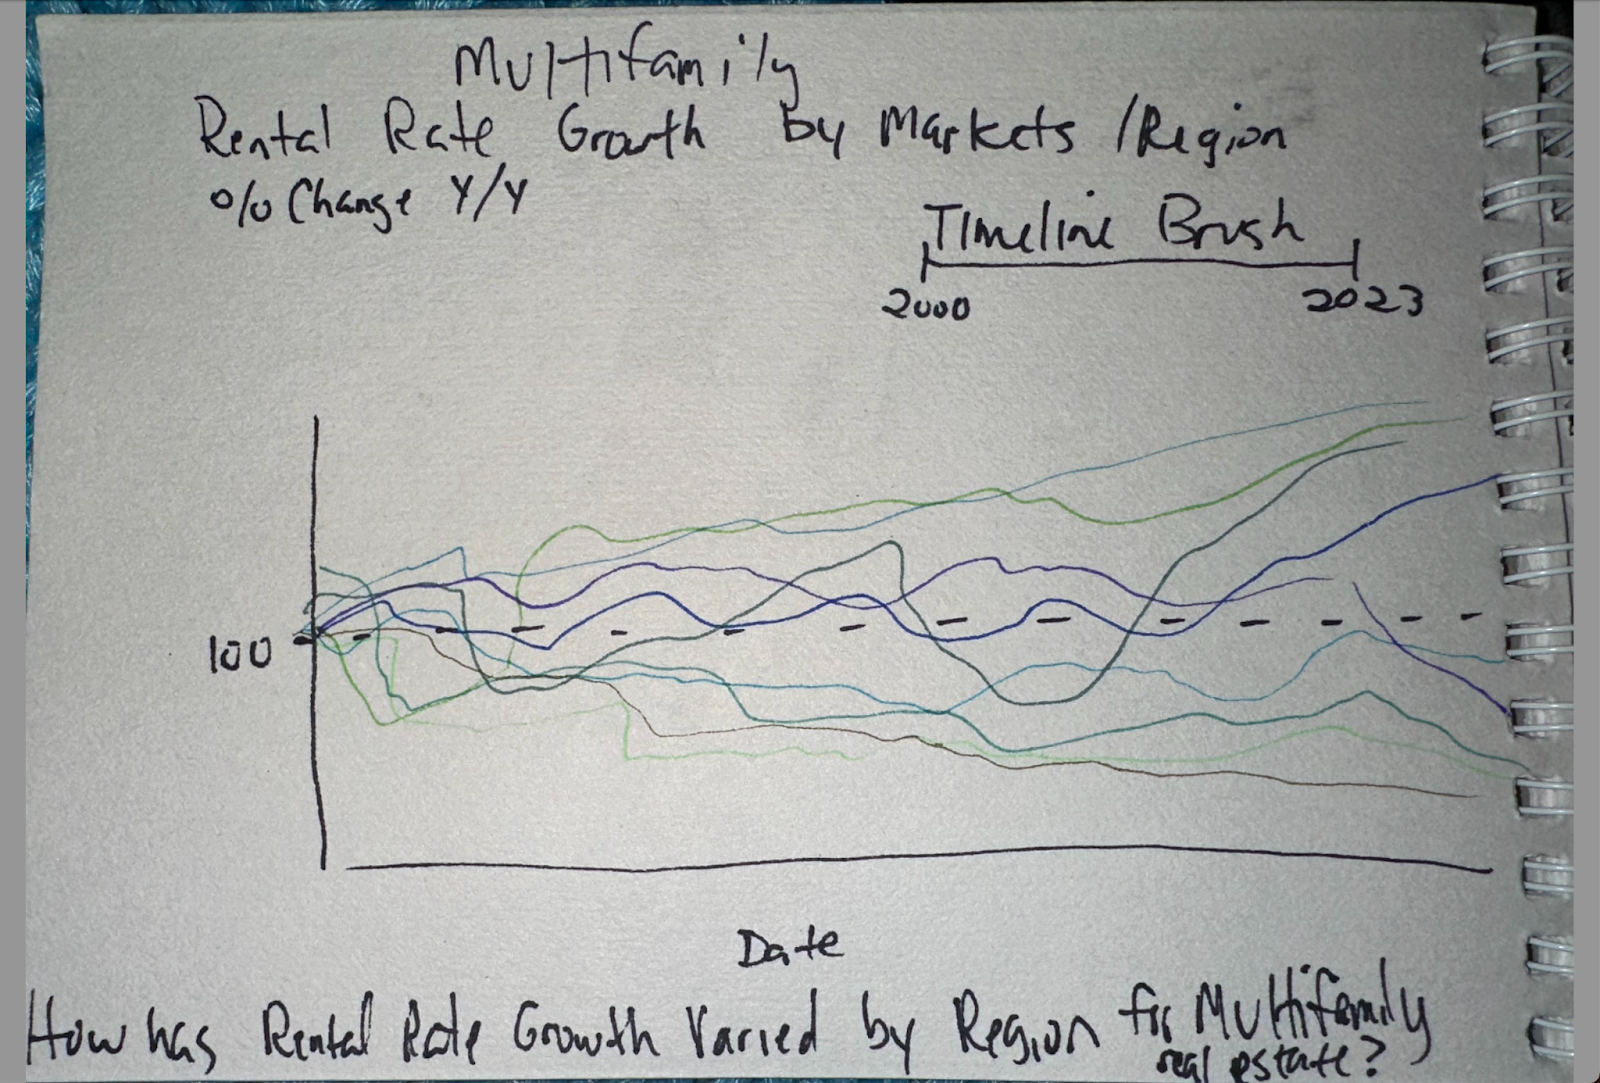 Multifamily
Rental Rate Growth by Markets /Region
% Change Y/Y
Timeline Brush
2000 2023
100
Date
How has Rental Rate Growth Varied by Region for Multifamily
real estate?